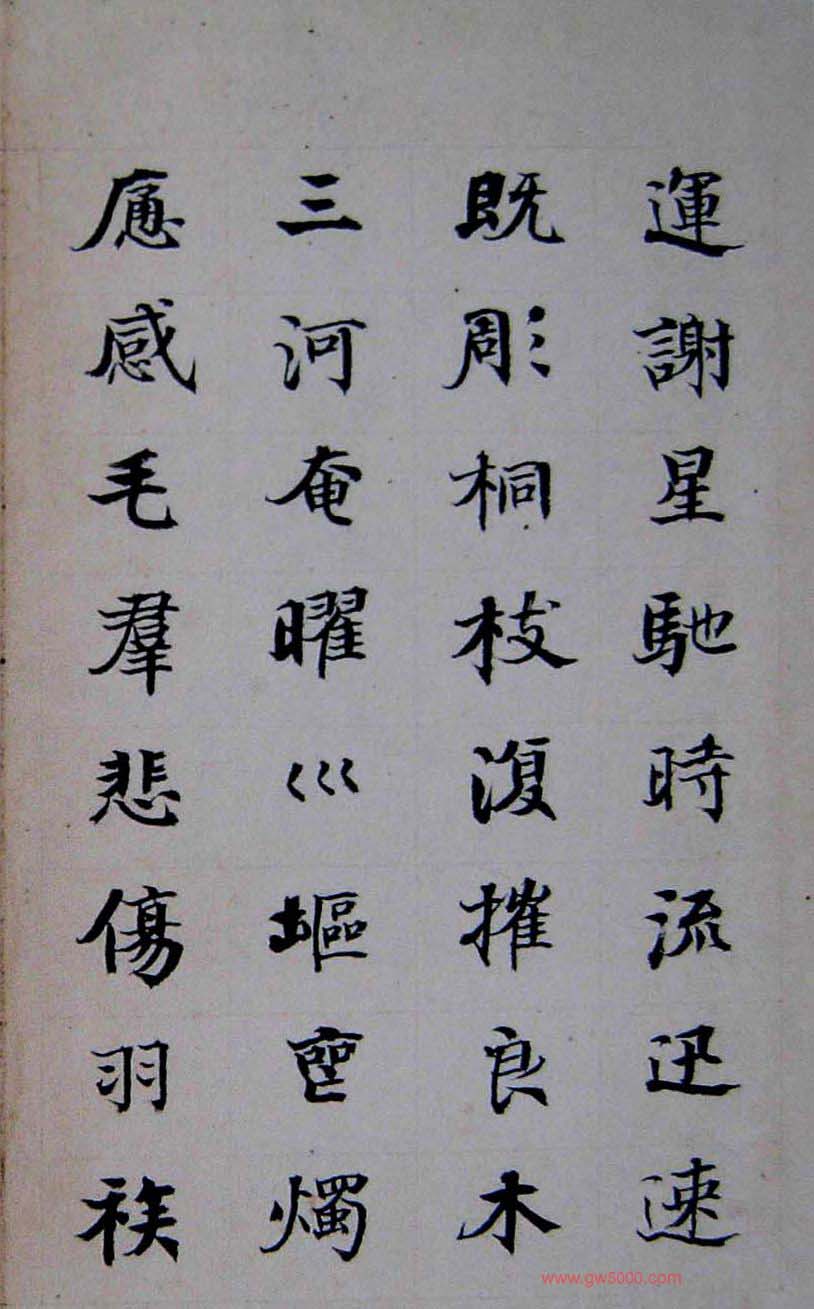 運謝星馳時流迅速
既彫桐枝復摧良木
三河奄曜巛嶇燭
應感毛羣悲傷羽族
www.gw5000.com